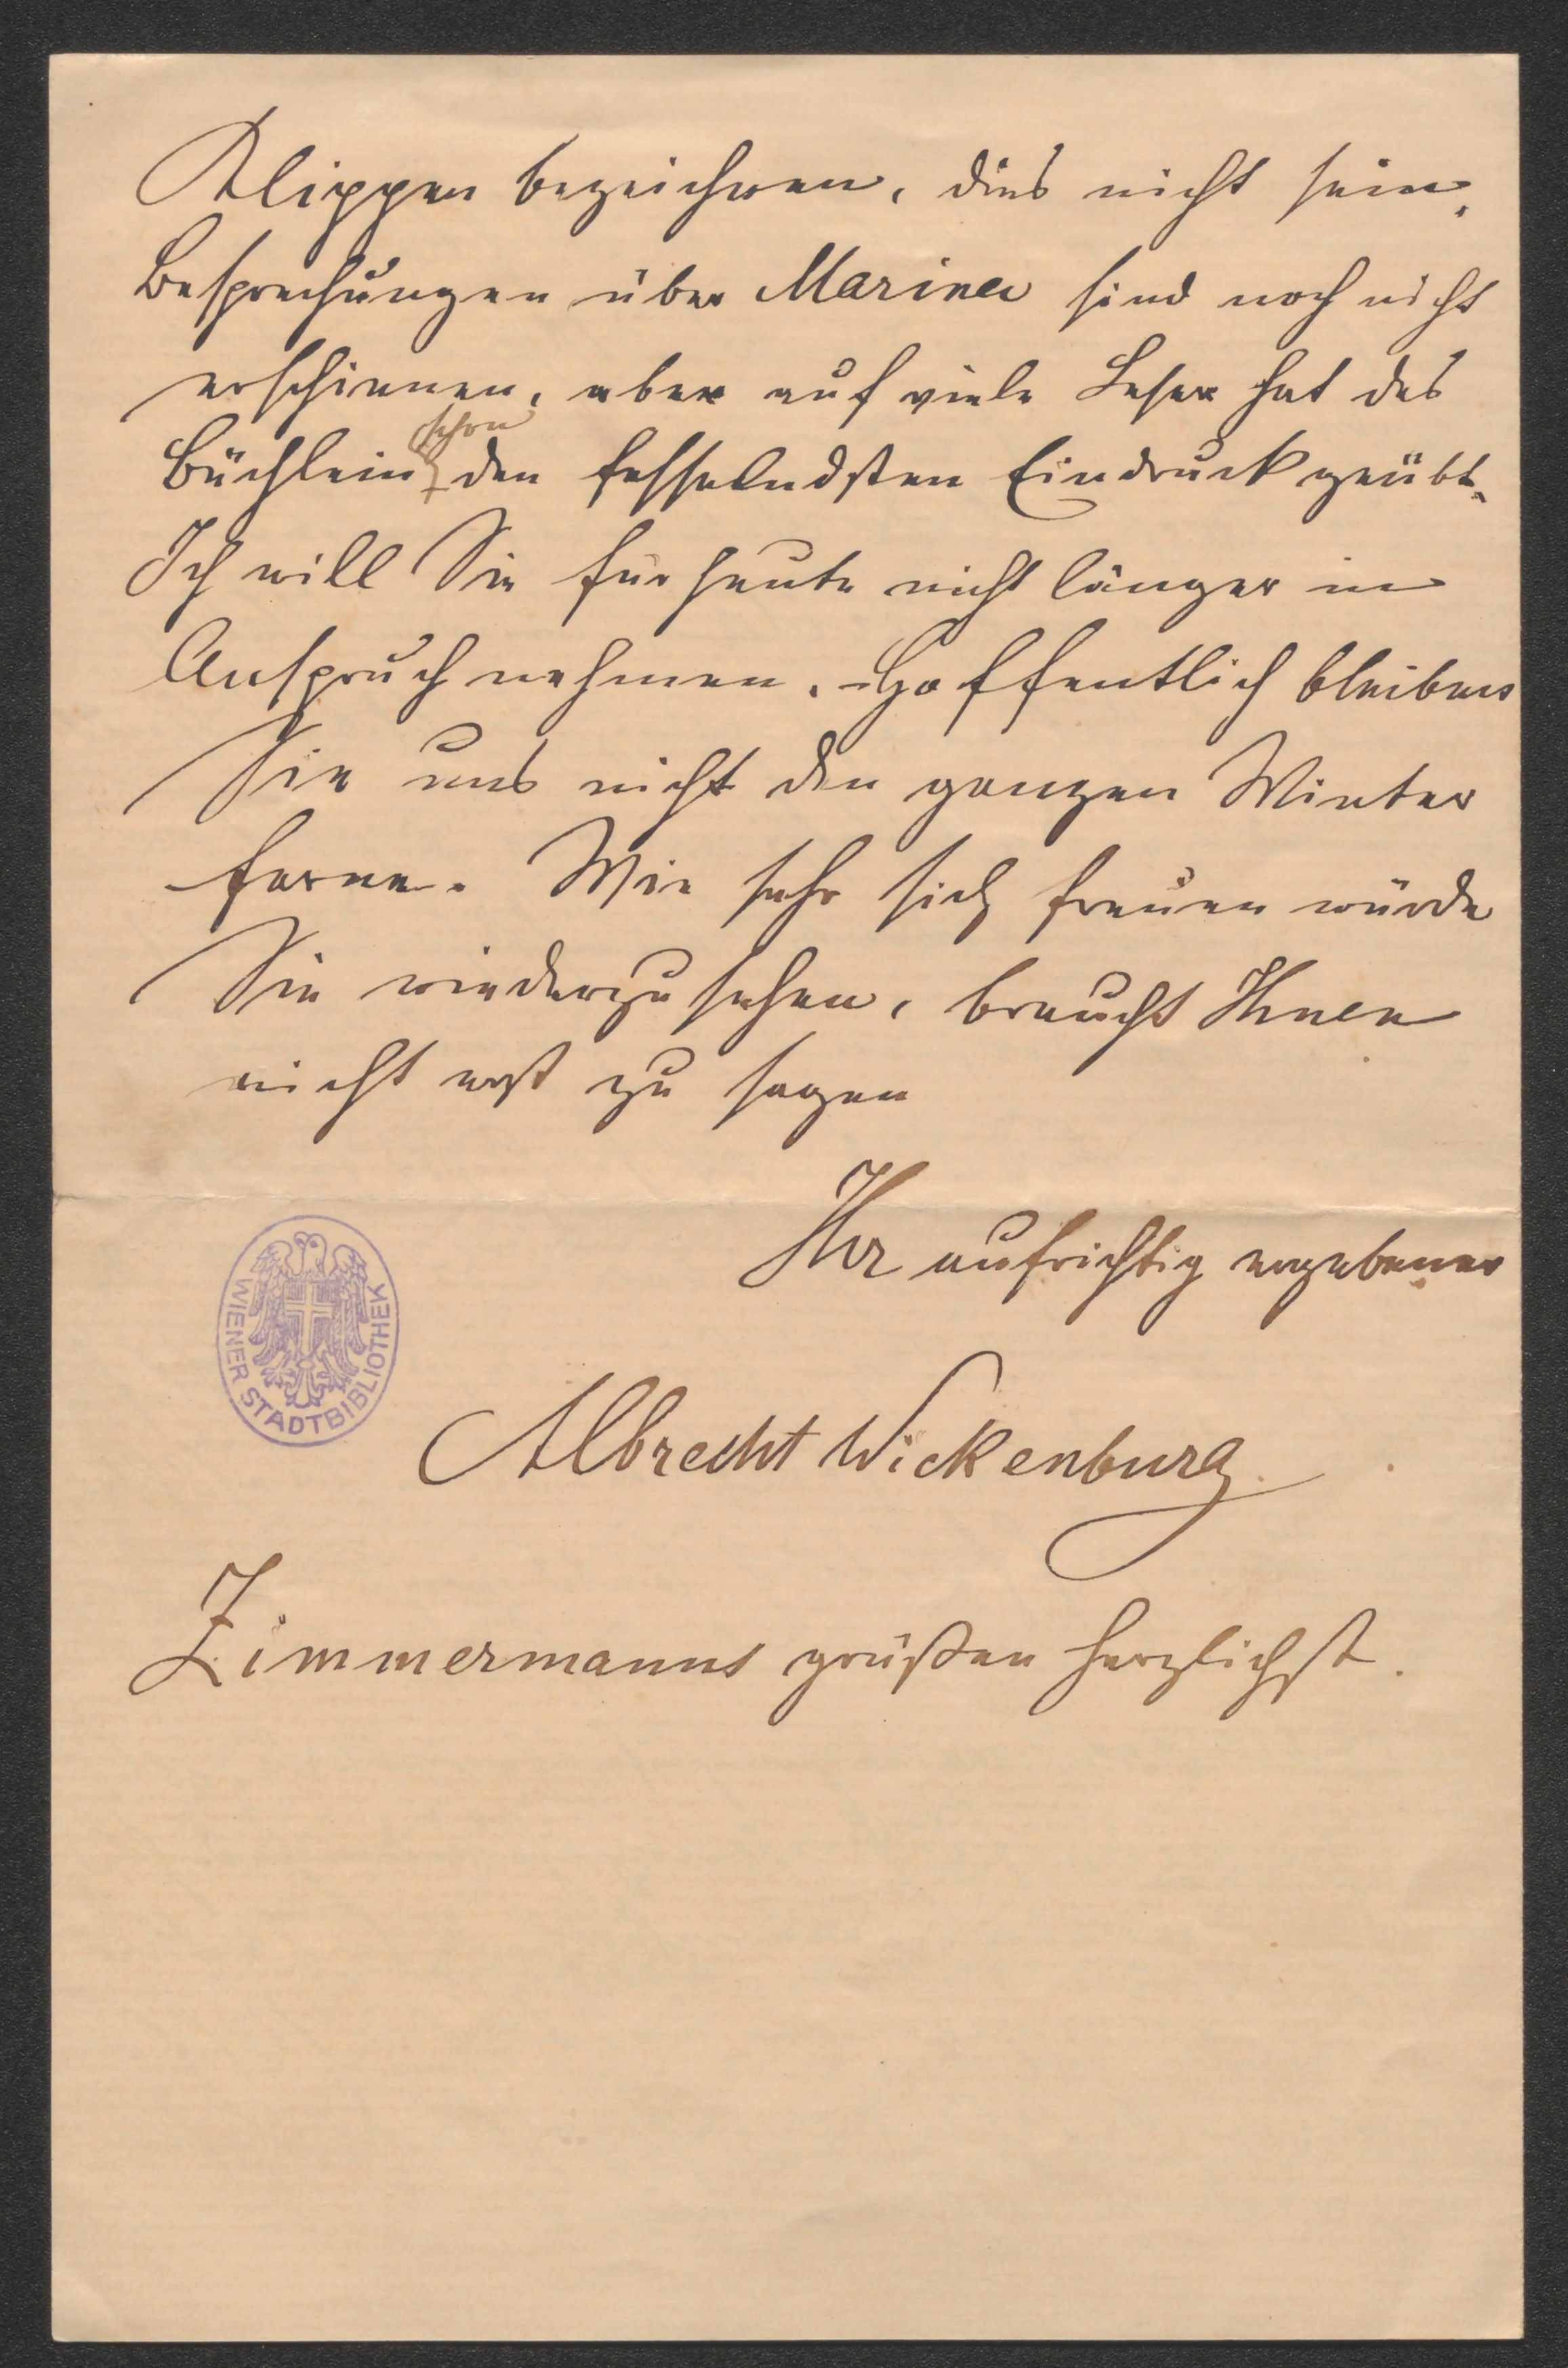 Klippen bezeichnen, dies nicht sein.
Besprechungen über Marina sind noch nicht
erschienen, aber auf viele Leser hat das
schon
Büchlein den fesselndsten Eindruck geübt.
Ich will Sie für heute nicht länger in
Anspruch nehmen. Hoffentlich bleiben
Sie uns nicht den ganzen Winter
ferne. Wie sehr sich freuen würde
Sie wiederzusehen, braucht Ihnen
nicht erst zu sagen
Ihr aufrichtig ergebener
WIENER STADTBIBLIOTHEK
Albrecht Wickenburg
Zimmermanns grüßen herzlichst.